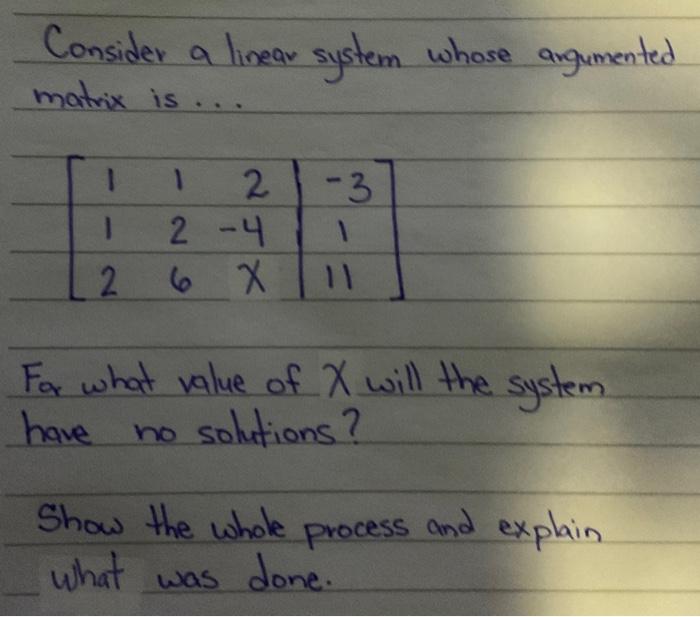 Consider a linear system whose argumented
matrix is ...
1 1 2 | -3
1 2 -4 | 1
2 6 X | 11
For what value of X will the system
have no solutions?
Show the whole process and explain
what was done.